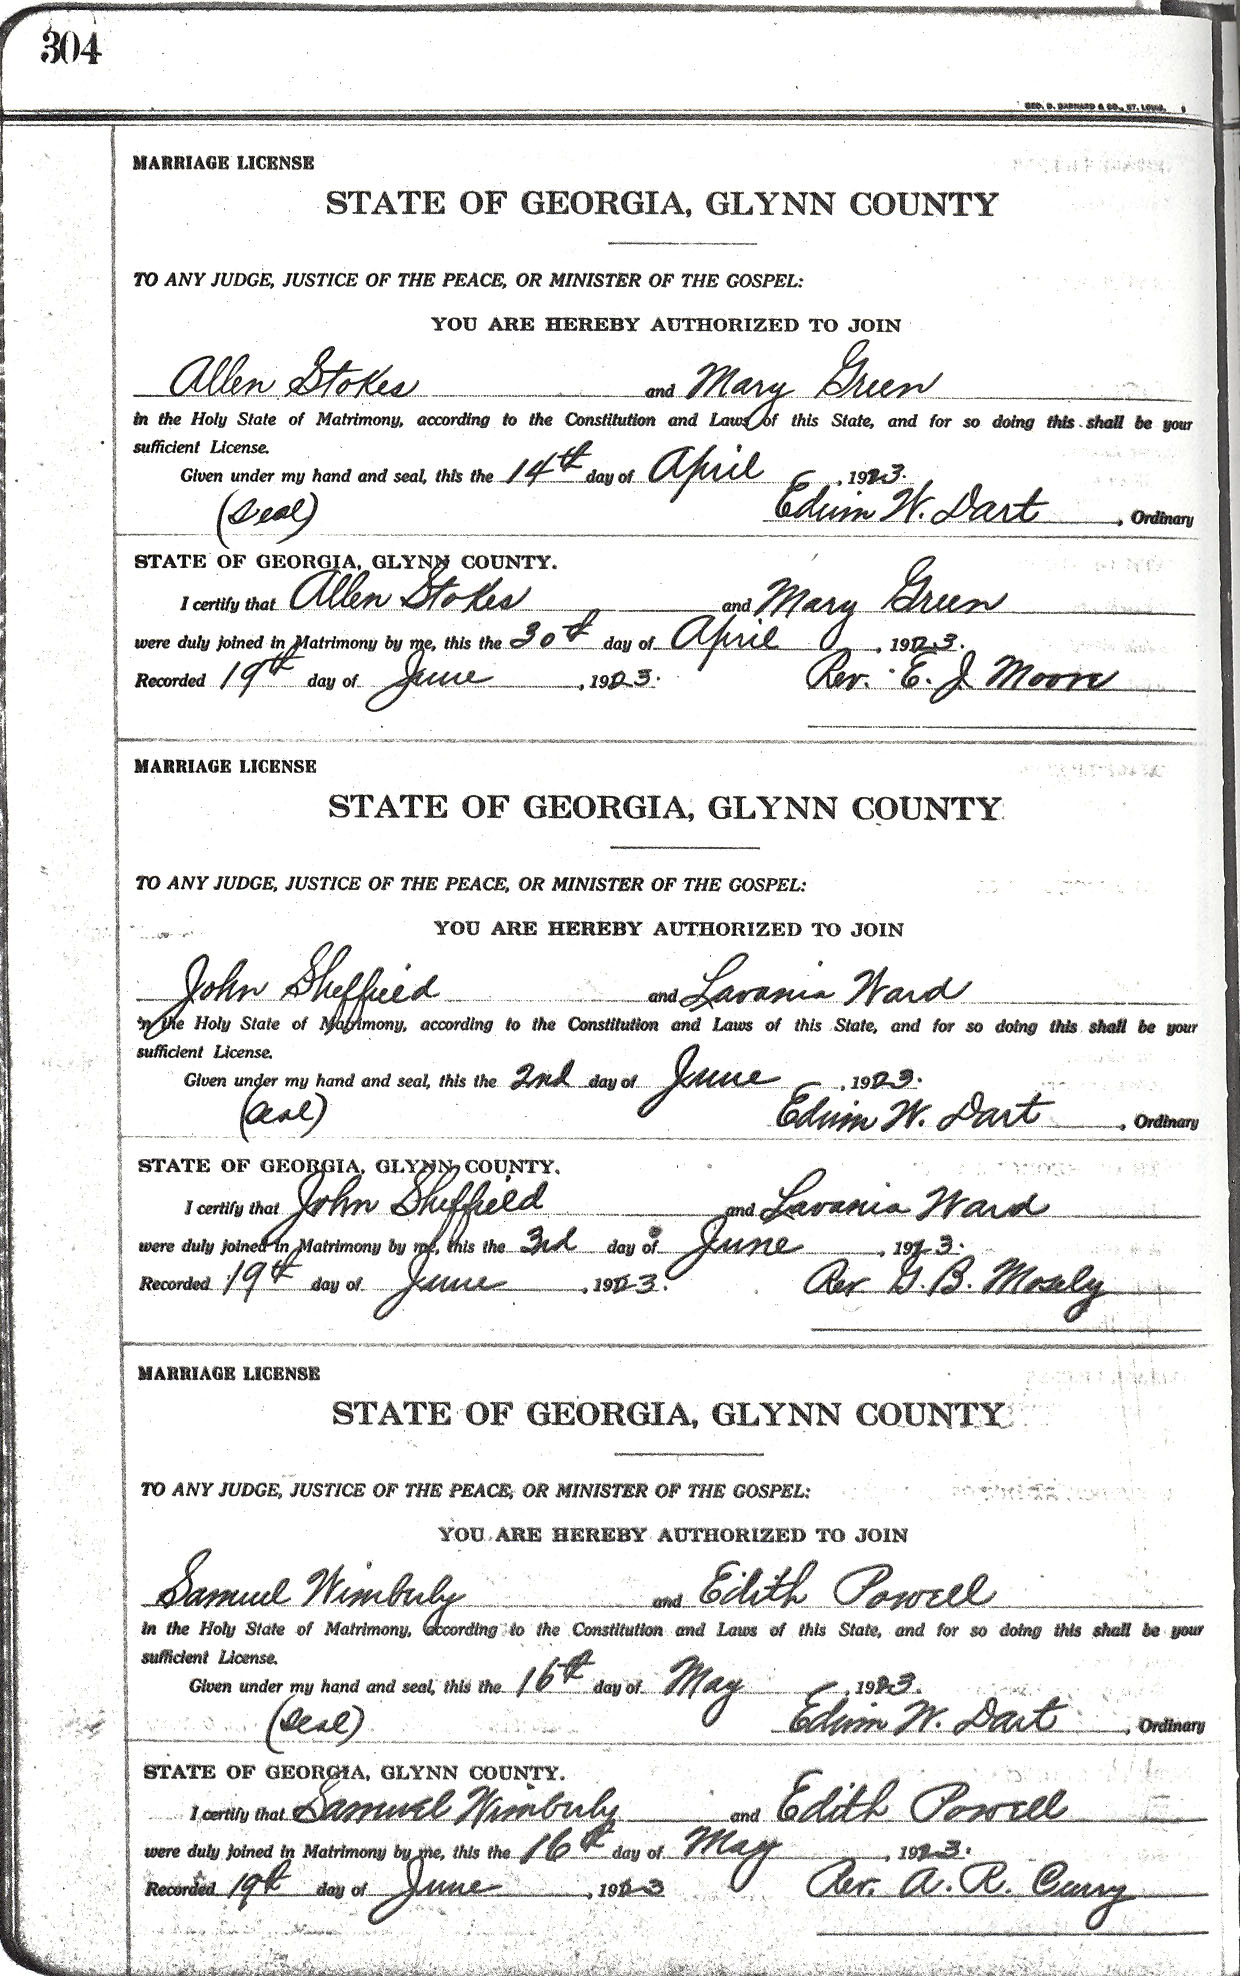 304
GEO. D. BARNARD & CO., ST. LOUIS.
MARRIAGE LICENSE
STATE OF GEORGIA, GLYNN COUNTY
TO ANY JUDGE, JUSTICE OF THE PEACE, OR MINISTER OF THE GOSPEL:
YOU ARE HEREBY AUTHORIZED TO JOIN
Allen Stokes and Mary Green
in the Holy State of Matrimony, according to the Constitution and Laws of this State, and for so doing this shall be your
sufficient License.
Given under my hand and seal, this the 14th day of April, 1923.
(Seal) Edwin W. Dart, Ordinary
STATE OF GEORGIA, GLYNN COUNTY.
I certify that Allen Stokes and Mary Green
were duly joined in Matrimony by me, this the 30th day of April, 1923.
Recorded 19th day of June, 1923. Rev. E. J. Moore
MARRIAGE LICENSE
STATE OF GEORGIA, GLYNN COUNTY
TO ANY JUDGE, JUSTICE OF THE PEACE, OR MINISTER OF THE GOSPEL:
YOU ARE HEREBY AUTHORIZED TO JOIN
John Sheffield and Lavania Ward
in the Holy State of Matrimony, according to the Constitution and Laws of this State, and for so doing this shall be your
sufficient License.
Given under my hand and seal, this the 2nd day of June, 1923.
(Seal) Edwin W. Dart, Ordinary
STATE OF GEORGIA, GLYNN COUNTY.
I certify that John Sheffield and Lavania Ward
were duly joined in Matrimony by me, this the 3rd day of June, 1923.
Recorded 19th day of June, 1923. Rev G. B. Mosely
MARRIAGE LICENSE
STATE OF GEORGIA, GLYNN COUNTY
TO ANY JUDGE, JUSTICE OF THE PEACE, OR MINISTER OF THE GOSPEL:
YOU ARE HEREBY AUTHORIZED TO JOIN
Samuel Wimberly and Edith Powell
in the Holy State of Matrimony, according to the Constitution and Laws of this State, and for so doing this shall be your
sufficient License.
Given under my hand and seal, this the 16th day of May, 1923.
(Seal) Edwin W. Dart, Ordinary
STATE OF GEORGIA, GLYNN COUNTY.
I certify that Samuel Wimberly and Edith Powell
were duly joined in Matrimony by me, this the 16th day of May, 1923.
Recorded 19th day of June, 1923 Rev. A. R. Curry